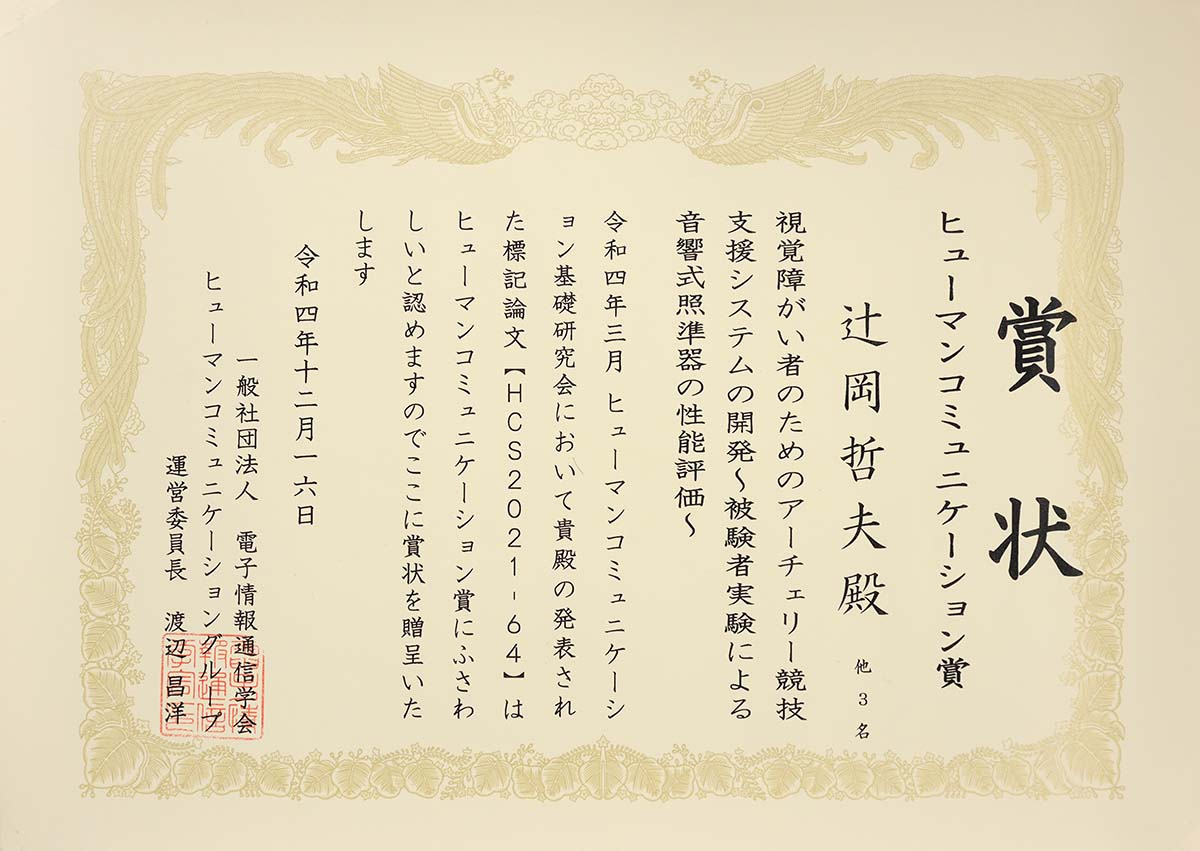 賞状
ヒューマンコミュニケーション賞
辻岡哲夫殿 他3名
視覚障がい者のためのアーチェリー競技
支援システムの開発～被験者実験による
音響式照準器の性能評価～
令和四年三月 ヒューマンコミュニケーシ
ョン基礎研究会において貴殿の発表され
た標記論文【HCS2021-64】は
ヒューマンコミュニケーション賞にふさわ
しいと認めますのでここに賞状を贈呈いた
します
令和四年十二月一六日
一般社団法人 電子情報通信学会
ヒューマンコミュニケーショングループ
運営委員長 渡辺昌洋